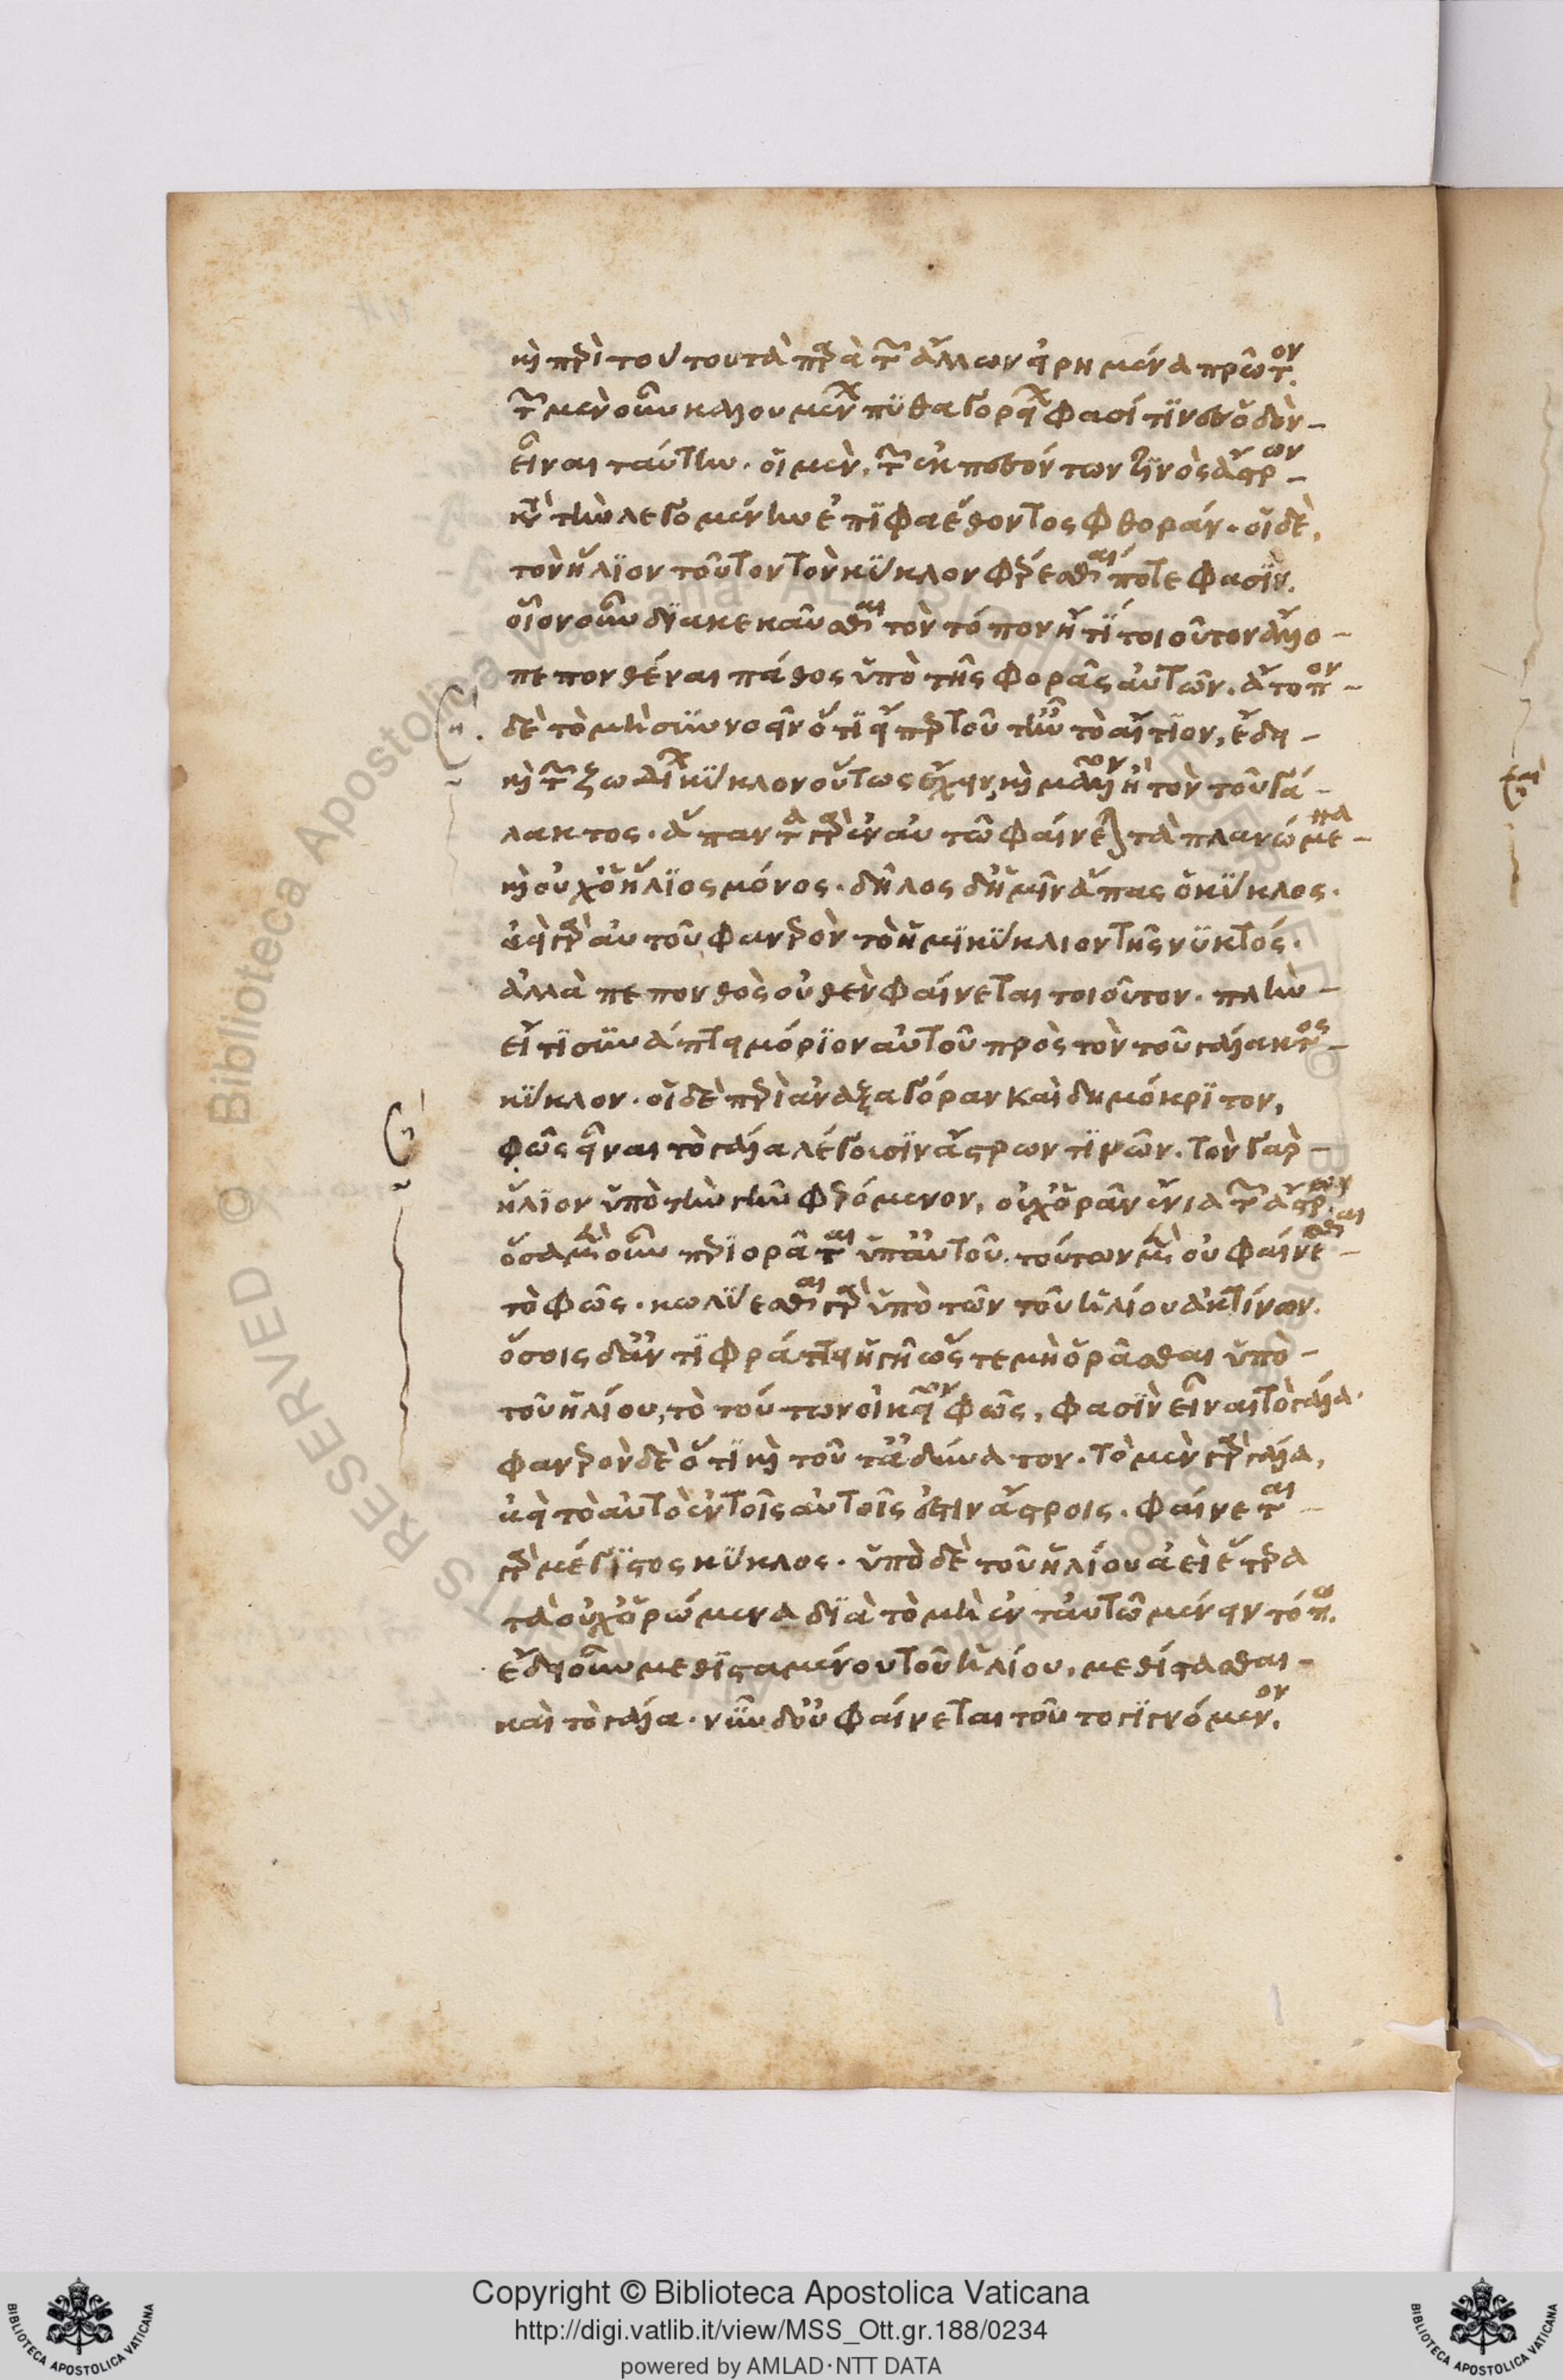 καὶ περὶ τούτου τὰ παρὰ τῶν ἄλλων εἰρημένα πρῶτον.
τῶν μὲν οὖν καλουμένων πυθαγορείων φασί τινες ὁδὸν
εἶναι ταύτην. οἱ μὲν, τῶν ἐκπεσόντων τινὸς ἄστρων
κατὰ τὴν λεγομένην ἐπὶ φαέθοντος φθοράν. οἱ δὲ,
τὸν ἥλιον τοῦτον τὸν κύκλον φέρεσθαί ποτε φασὶν.
οἷον οὖν διακεκαῦσθαι τὸν τόπον ἤ τι τοιοῦτον ἄλλο
πεπονθέναι πάθος ὑπὸ τῆς φορᾶς αὐτῶν. ἄτοπον
δὲ τὸ μὴ συννοεῖν ὅτι εἴπερ τοῦτ' ἦν τὸ αἴτιον, ἔδει
καὶ τὸν ζωδίων κύκλον οὕτως ἔχειν, καὶ μᾶλλον ἢ τὸν τοῦ γά
λακτος. ἅπαντα γὰρ ἐν αὐτῶ φαίνεται τὰ πλανώμενα
καὶ οὐχ ὁ ἥλιος μόνος. δῆλος δ' ἡμῖν ἅπας ὁ κύκλος.
ἀεὶ γὰρ αὐτοῦ φανερὸν τὸ ἡμικύκλιον τῆς νυκτός.
ἀλλὰ πεπονθὸς οὐθὲν φαίνεται τοιοῦτον. πλὴν
εἴ τι συνάπτει μόριον αὐτοῦ πρὸς τὸν τοῦ γάλακτος
κύκλον. οἱ δὲ περὶ ἀναξαγόραν καὶ δημόκριτον,
φῶς εἶναι τὸ γάλα λέγουσιν ἄστρων τινῶν. τὸν γὰρ
ἥλιον ὑπὸ τὴν γῆν φερόμενον, οὐχ ὁρᾶν ἔνια τῶν ἄστρων.
ὅσα μὲν οὖν περιορᾶται ὑπ' αὐτοῦ. τούτων μὲν οὐ φαίνεσθαι
τὸ φῶς. κωλύεσθαι γὰρ ὑπὸ τῶν τοῦ ἡλίου ἀκτίνων.
ὅσοις δ' ἀντιφράττει ἡ γῆ ὥστε μὴ ὁρᾶσθαι ὑπὸ
τοῦ ἡλίου, τὸ τούτων οἰκεῖον φῶς, φασὶν εἶναι τὸ γάλα.
φανερὸν δὲ ὅτι καὶ τοῦτ' ἀδύνατον. τὸ μὲν γὰρ γάλα,
ἀεὶ τὸ αὐτὸ ἐν τοῖς αὐτοῖς ἐστιν ἄστροις. φαίνεται
γὰρ μέγιστος κύκλος. ὑπὸ δὲ τοῦ ἡλίου ἀεὶ ἕτερα
τὰ οὐχ ὁρώμενα διὰ τὸ μὴ ἐν ταὐτῶ μένειν τόπω.
ἔδει οὖν μεθισταμένου τοῦ ἡλίου, μεθίστασθαι
καὶ τὸ γάλα. νῦν δ' οὐ φαίνεται τοῦτο γινόμενον.
Copyright © Biblioteca Apostolica Vaticana
http://digi.vatlib.it/view/MSS_Ott.gr.188/0234
powered by AMLAD·NTT DATA